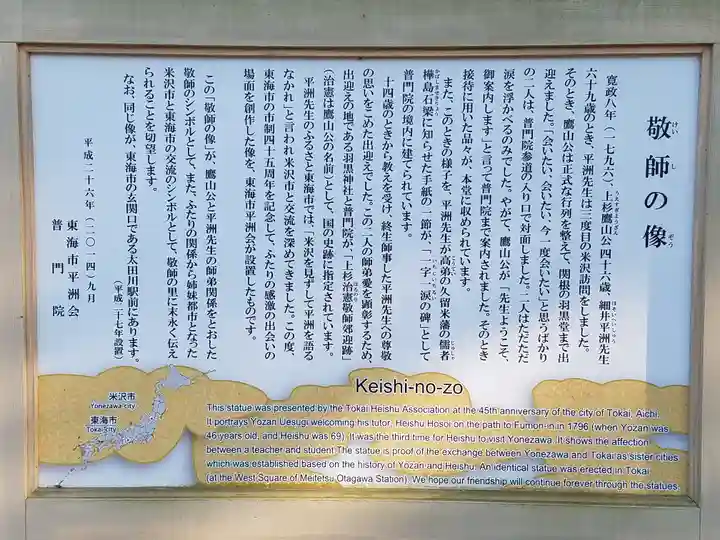 敬師の像
けいし ぞう
寛政八年(一七九六)、上杉鷹山公四十六歳、細井平洲先生
六十九歳のとき、平洲先生は三度目の米沢訪問をしました。
そのとき、鷹山公は正式な行列を整えて、関根の羽黒堂まで出
迎えました。「会いたい、会いたい、今一度会いたい」と思うばかり
の二人は、普門院参道の入り口で対面しました。二人はただただ
涙を浮かべるのみでした。やがて、鷹山公が「先生ようこそ、
御案内します」と言って普門院まで案内されました。そのとき
接待に用いた品々が、本堂に収められています。
また、このときの様子を、平洲先生が高弟の久留米藩の儒者
樺島石梁に知らせた手紙の一節が、「一字一涙の碑」として
普門院の境内に建てられています。
十四歳のときから教えを受け、終生師事した平洲先生の尊敬
の思いをこめた出迎えでした。この二人の師弟愛を顕彰するため、
出迎えの地である羽黒神社と普門院が、「上杉治憲敬師郊迎跡」
(治憲は鷹山公の名前)として、国の史跡に指定されています。
平洲先生のふるさと東海市では、「米沢を見ずして平洲を語る
なかれ」と言われ米沢市と交流を深めてきました。この度、
東海市の市制四十五周年を記念して、ふたりの感激の出会いの
場面を創作した像を、東海市平洲会が設置したものです。
この「敬師の像」が、鷹山公と平洲先生の師弟関係をとおした
敬師のシンボルとして、また、ふたりの関係から姉妹都市となった
米沢市と東海市の交流のシンボルとして、敬師の里に末永く伝え
られることを切望します。
なお、同じ像が、東海市の玄関口である太田川駅前にあります。
(平成二十七年設置)
平成二十六年(二〇一四)九月
東海市平洲会
普門院
Keishi-no-zo
米沢市
Yonezawa city
東海市
Tokai city
This statue was presented by the Tokai Heishu Association at the 45th anniversary of the city of Tokai, Aichi.
It portrays Yozan Uesugi welcoming his tutor, Heishu Hosoi on the path to Fumon-in in 1796 (when Yozan was
46 years old, and Heishu was 69). It was the third time for Heishu to visit Yonezawa. It shows the affection
between a teacher and student.The statue is proof of the exchange between Yonezawa and Tokai as sister cities
which was established based on the history of Yozan and Heishu. An identical statue was erected in Tokai
(at the West Square of Meitetsu Otagawa Station). We hope our friendship will continue forever through the statues.